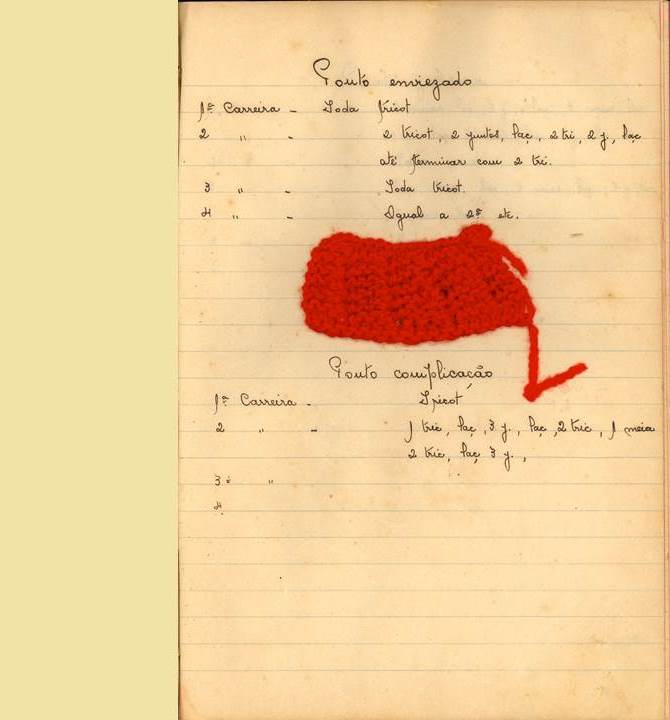 Ponto enviezado
1ª Carreira - Toda tricot
2 " - 2 tricot, 2 juntos, laç, 2 tri, 2 j., laç
até terminar com 2 tri.
3 " - Toda tricot.
4 " - Igual a 2ª etc.
Ponto complicação
1ª Carreira - Tricot
2 " - 1 tric, laç, 3 j., laç, 2 tric, 1 meia
2 tric, laç 3 j.,
3ª "
4